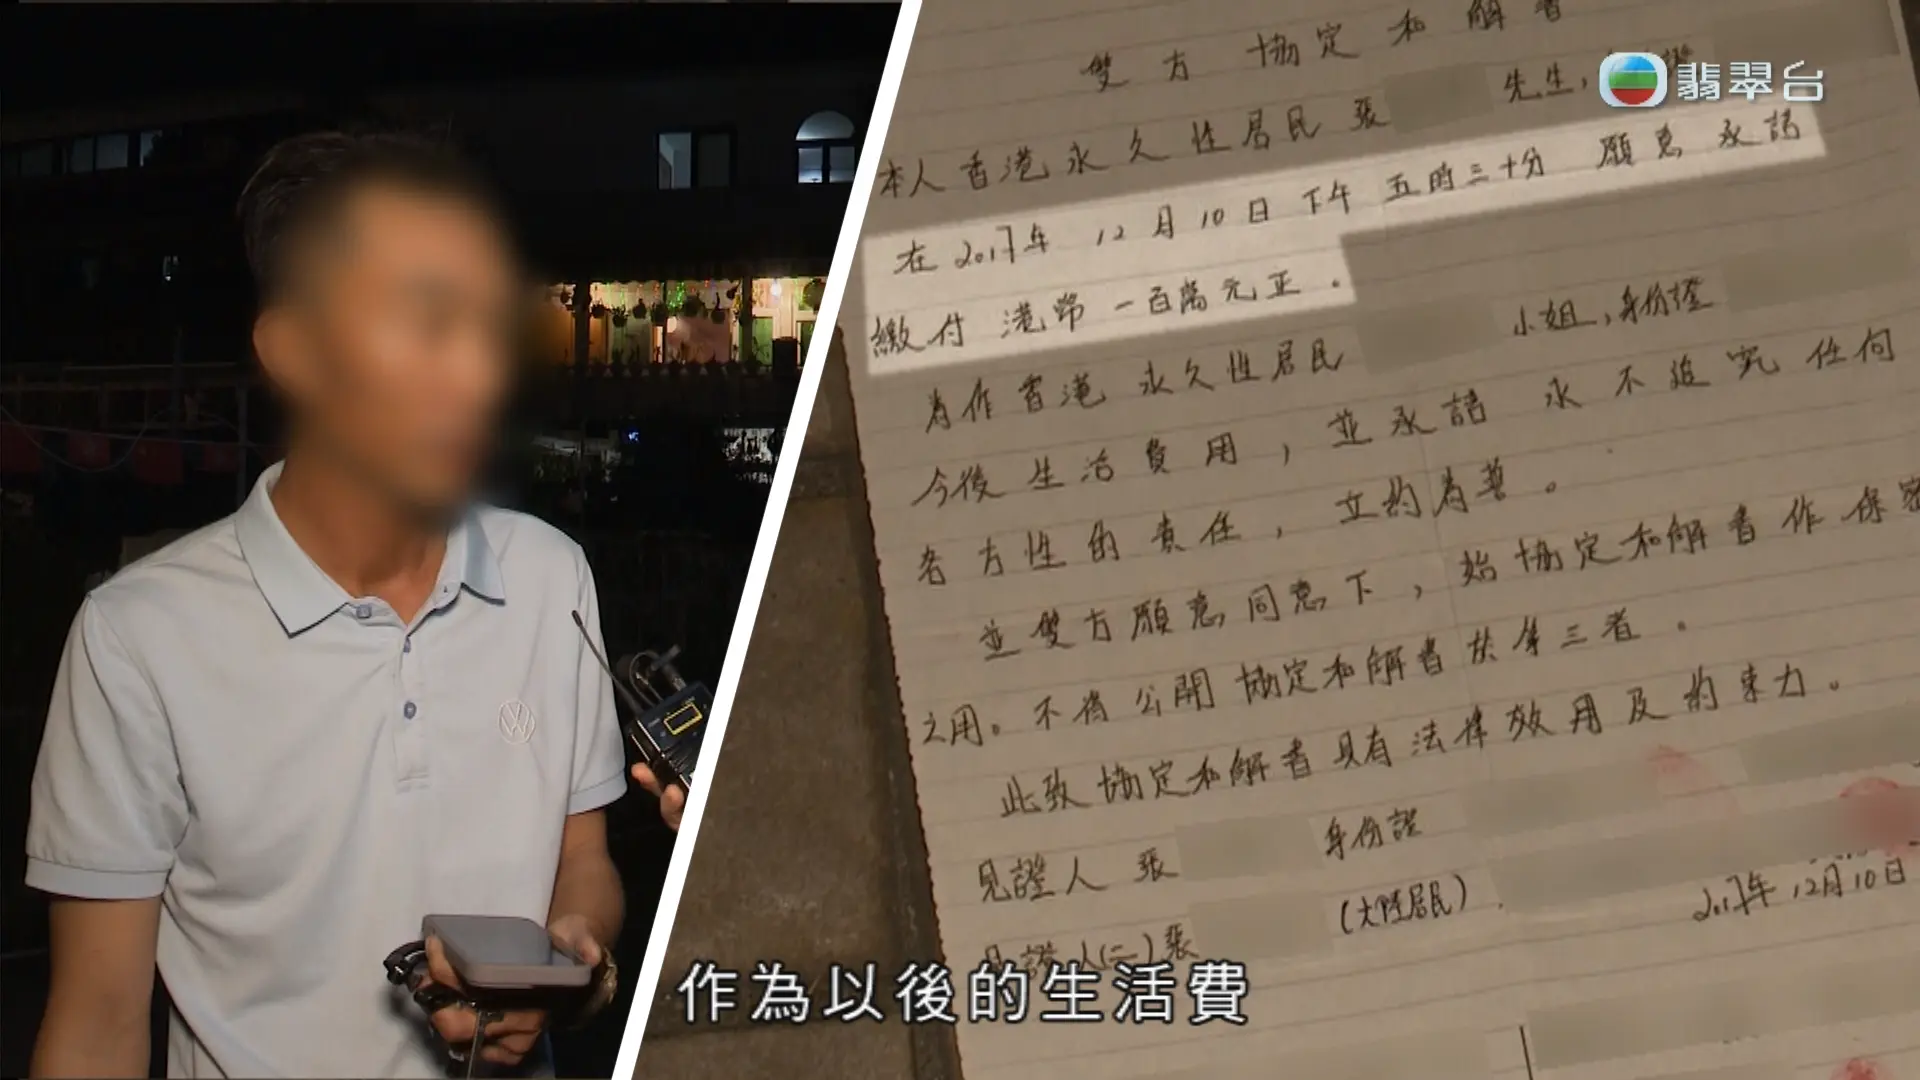 翡翠台
雙方協定和解書
本人香港永久性居民張 先生,
在2017年12月10日下午五時三十分 願意承諾
繳付港幣一百萬元正.
為作香港永久性居民 小姐,身份證
今後生活費用,並承諾永不追究任何
各方性的責任,立約為善。
並雙方願意同意下,始協定和解書作保密
之用。不得公開協定和解書於第三者.
此致協定和解書具有法律效用及約束力。
見證人 張 身份證
(大陸居民).
見證人(二)張
2017年12月10日
作為以後的生活費